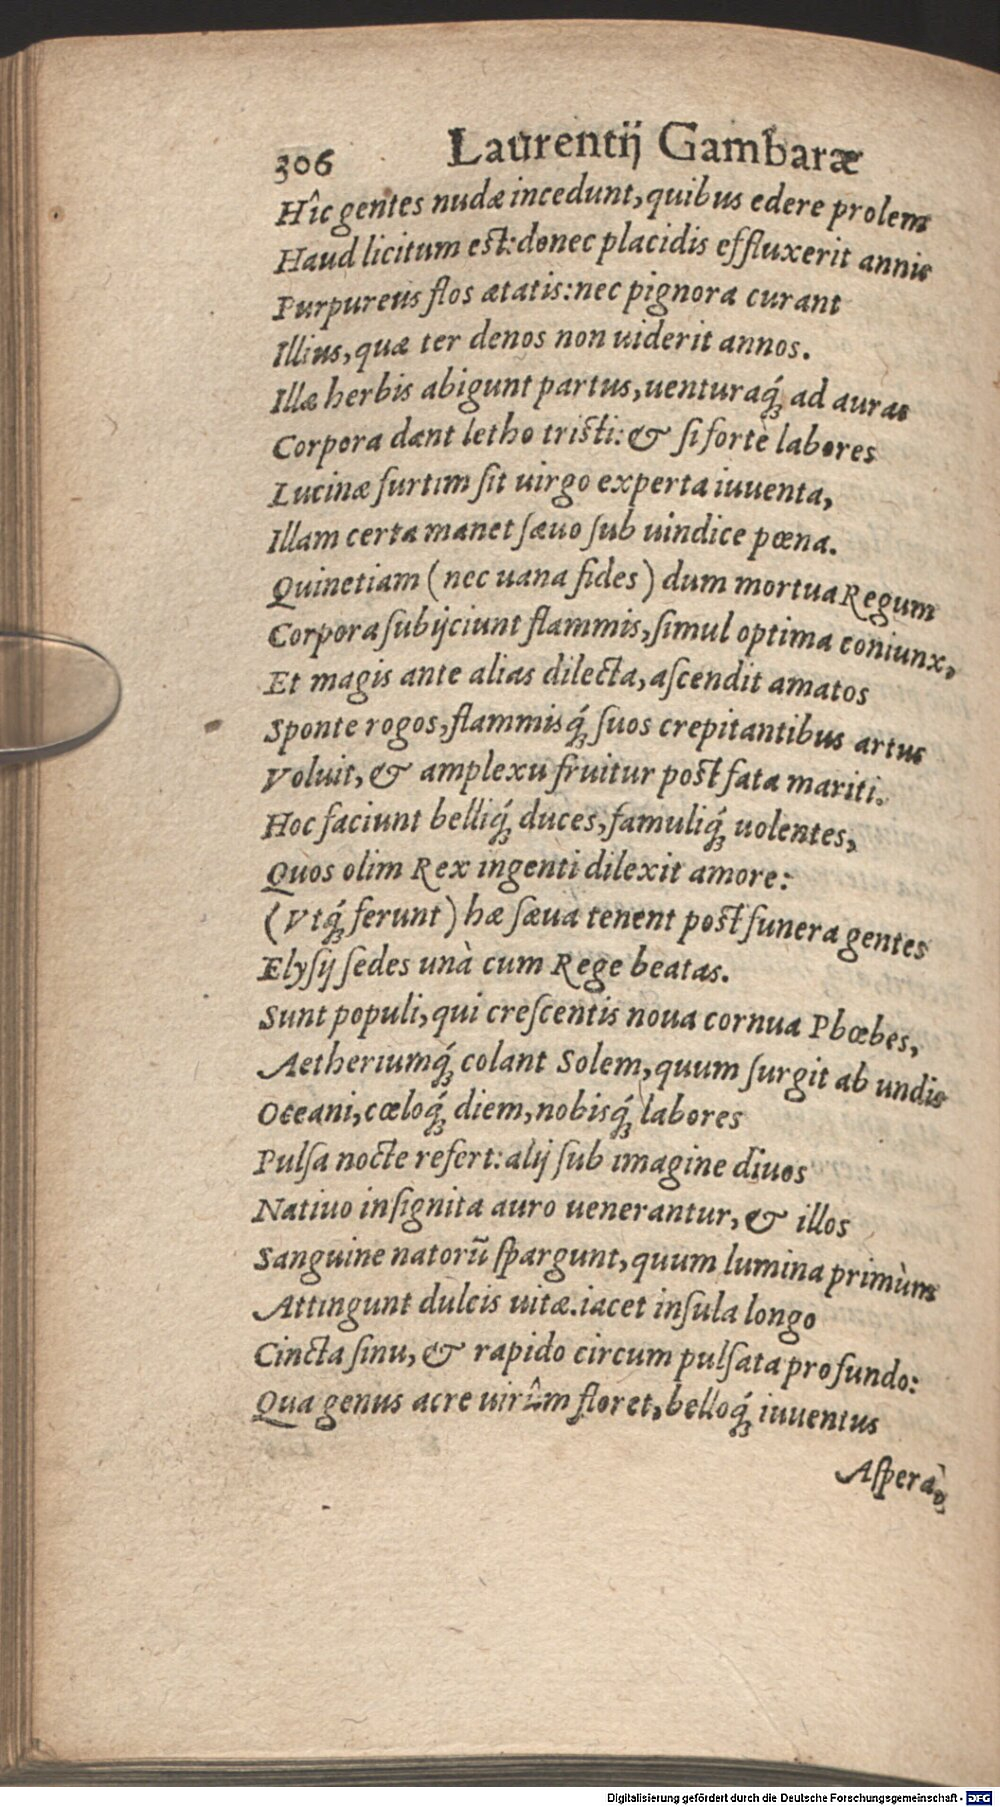 306 Laurentij Gambaræ
Hîc gentes nudæ incedunt, quibus edere prolem
Haud licitum est: donec placidis effluxerit annis
Purpureus flos ætatis: nec pignora curant
Illius, quæ ter denos non uiderit annos.
Illæ herbis abigunt partus, uenturaq́ꝫ ad auras
Corpora dant letho tristi: & si fortè labores
Lucinæ furtim sit uirgo experta iuuenta,
Illam certa manet sæuo sub uindice pœna.
Quinetiam (nec uana fides) dum mortua Regum
Corpora subijciunt flammis, simul optima coniunx,
Et magis ante alias dilecta, ascendit amatos
Sponte rogos, flammisq́ꝫ suos crepitantibus artus
Voluit, & amplexu fruitur post fata mariti.
Hoc faciunt belliq́ꝫ duces, famuliq́ꝫ uolentes,
Quos olim Rex ingenti dilexit amore:
(Vtq́ꝫ ferunt) hæ sæua tenent post funera gentes
Elysij sedes unà cum Rege beatas.
Sunt populi, qui crescentis noua cornua Phœbes,
Aetheriumq́ꝫ colant Solem, quum surgit ab undis
Oceani, cœloq́ꝫ diem, nobisq́ꝫ labores
Pulsa nocte refert: alij sub imagine diuos
Natiuo insignita auro uenerantur, & illos
Sanguine natorū spargunt, quum lumina primùm
Attingunt dulcis uitæ. iacet insula longo
Cincta sinu, & rapido circum pulsata profundo:
Qua genus acre uirûm floret, belloq́ꝫ iuuentus
Aspera,
Digitalisierung gefördert durch die Deutsche Forschungsgemeinschaft - DFG